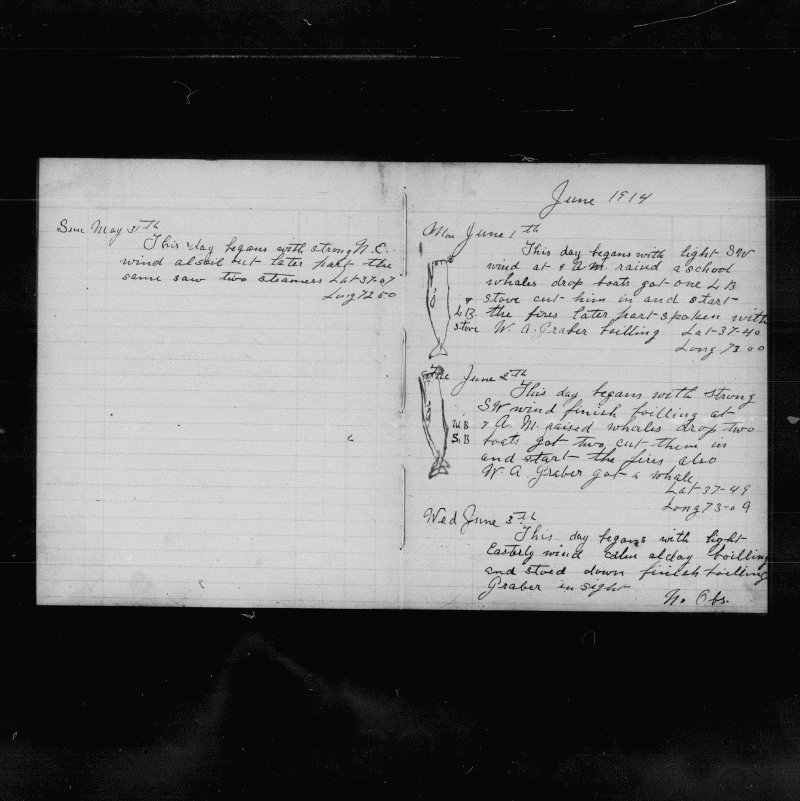 Sun May 31th
This day begans with strong N.E.
wind alsoil but later part the
same saw two steamers Lat 37-07
Long 72 50
June 1914
Mon June 1th
This day begans with light SW
wind at 8 A M. raised a school
whales drop boats got one L B
stove cut him in and start
the fires later part spoken with
W. A. Graber boilling Lat-37-40
Long 73 00
L B
stove
Tue June 2th
This day begans with strong
SW wind finish boilling at
7 A. M. raised whales drop two
boats got two, cut them in
and start the fires also
W A. Graber got a whale
Lat 37-49
Long 73-09
W B
S B
Wed June 3th
This day begans with light
Easterly wind calm alday boilling
and stoed down finish boilling
Graber in sight
N. Obs.